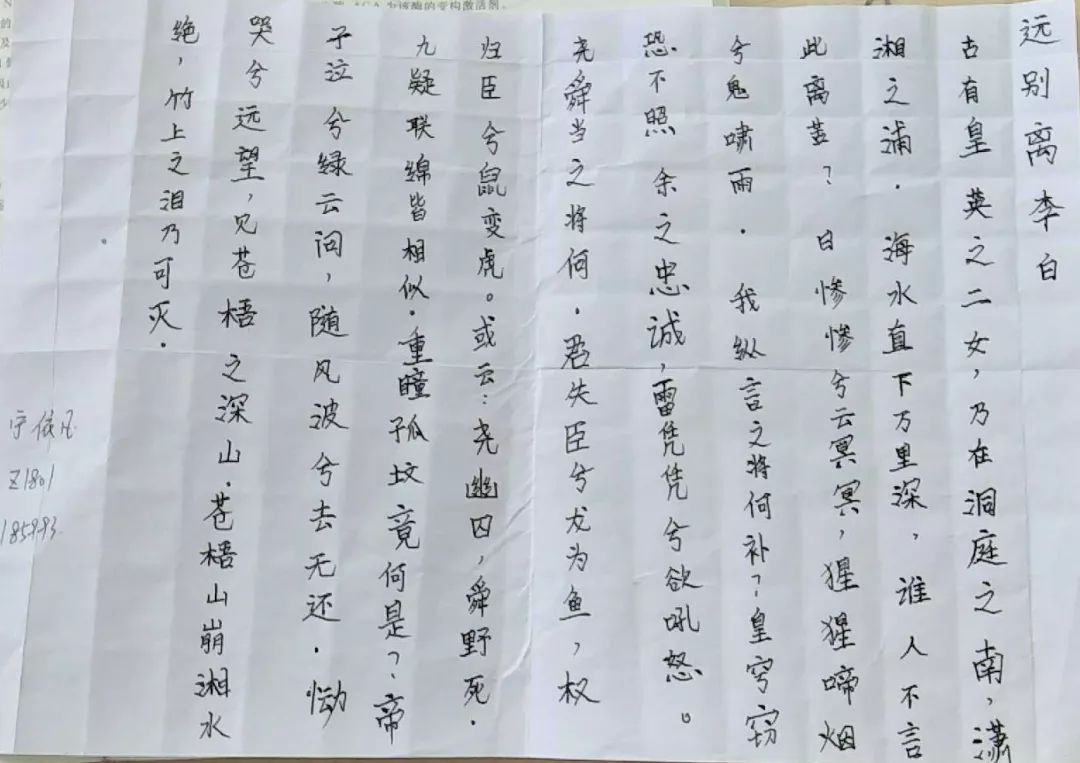 远别离李白
古有皇英之二女,乃在洞庭之南,潇
湘之浦.海水直下万里深,谁人不言
此离苦?日惨惨兮云冥冥,猩猩啼烟
兮鬼啸雨.我纵言之将何补?皇穹窃
恐不照余之忠诚,雷凭凭兮欲吼怒。
尧舜当之将何.君失臣兮龙为鱼,权
归臣兮鼠变虎。或云:尧幽囚,舜野死.
九疑联绵皆相似.重瞳孤坟竟何是?帝
子泣兮绿云问,随风波兮去无还.恸
哭兮远望,见苍梧之深山.苍梧山崩湘水
绝,竹上之泪乃可灭.
宁依凡
Z1801
185993
为该酶的变构激活剂。